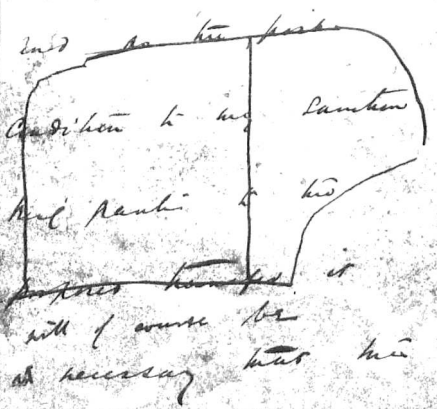 and as the first
Condition to my Sanction
being granted to the
proposed transfer it
will of course be
necessary that the